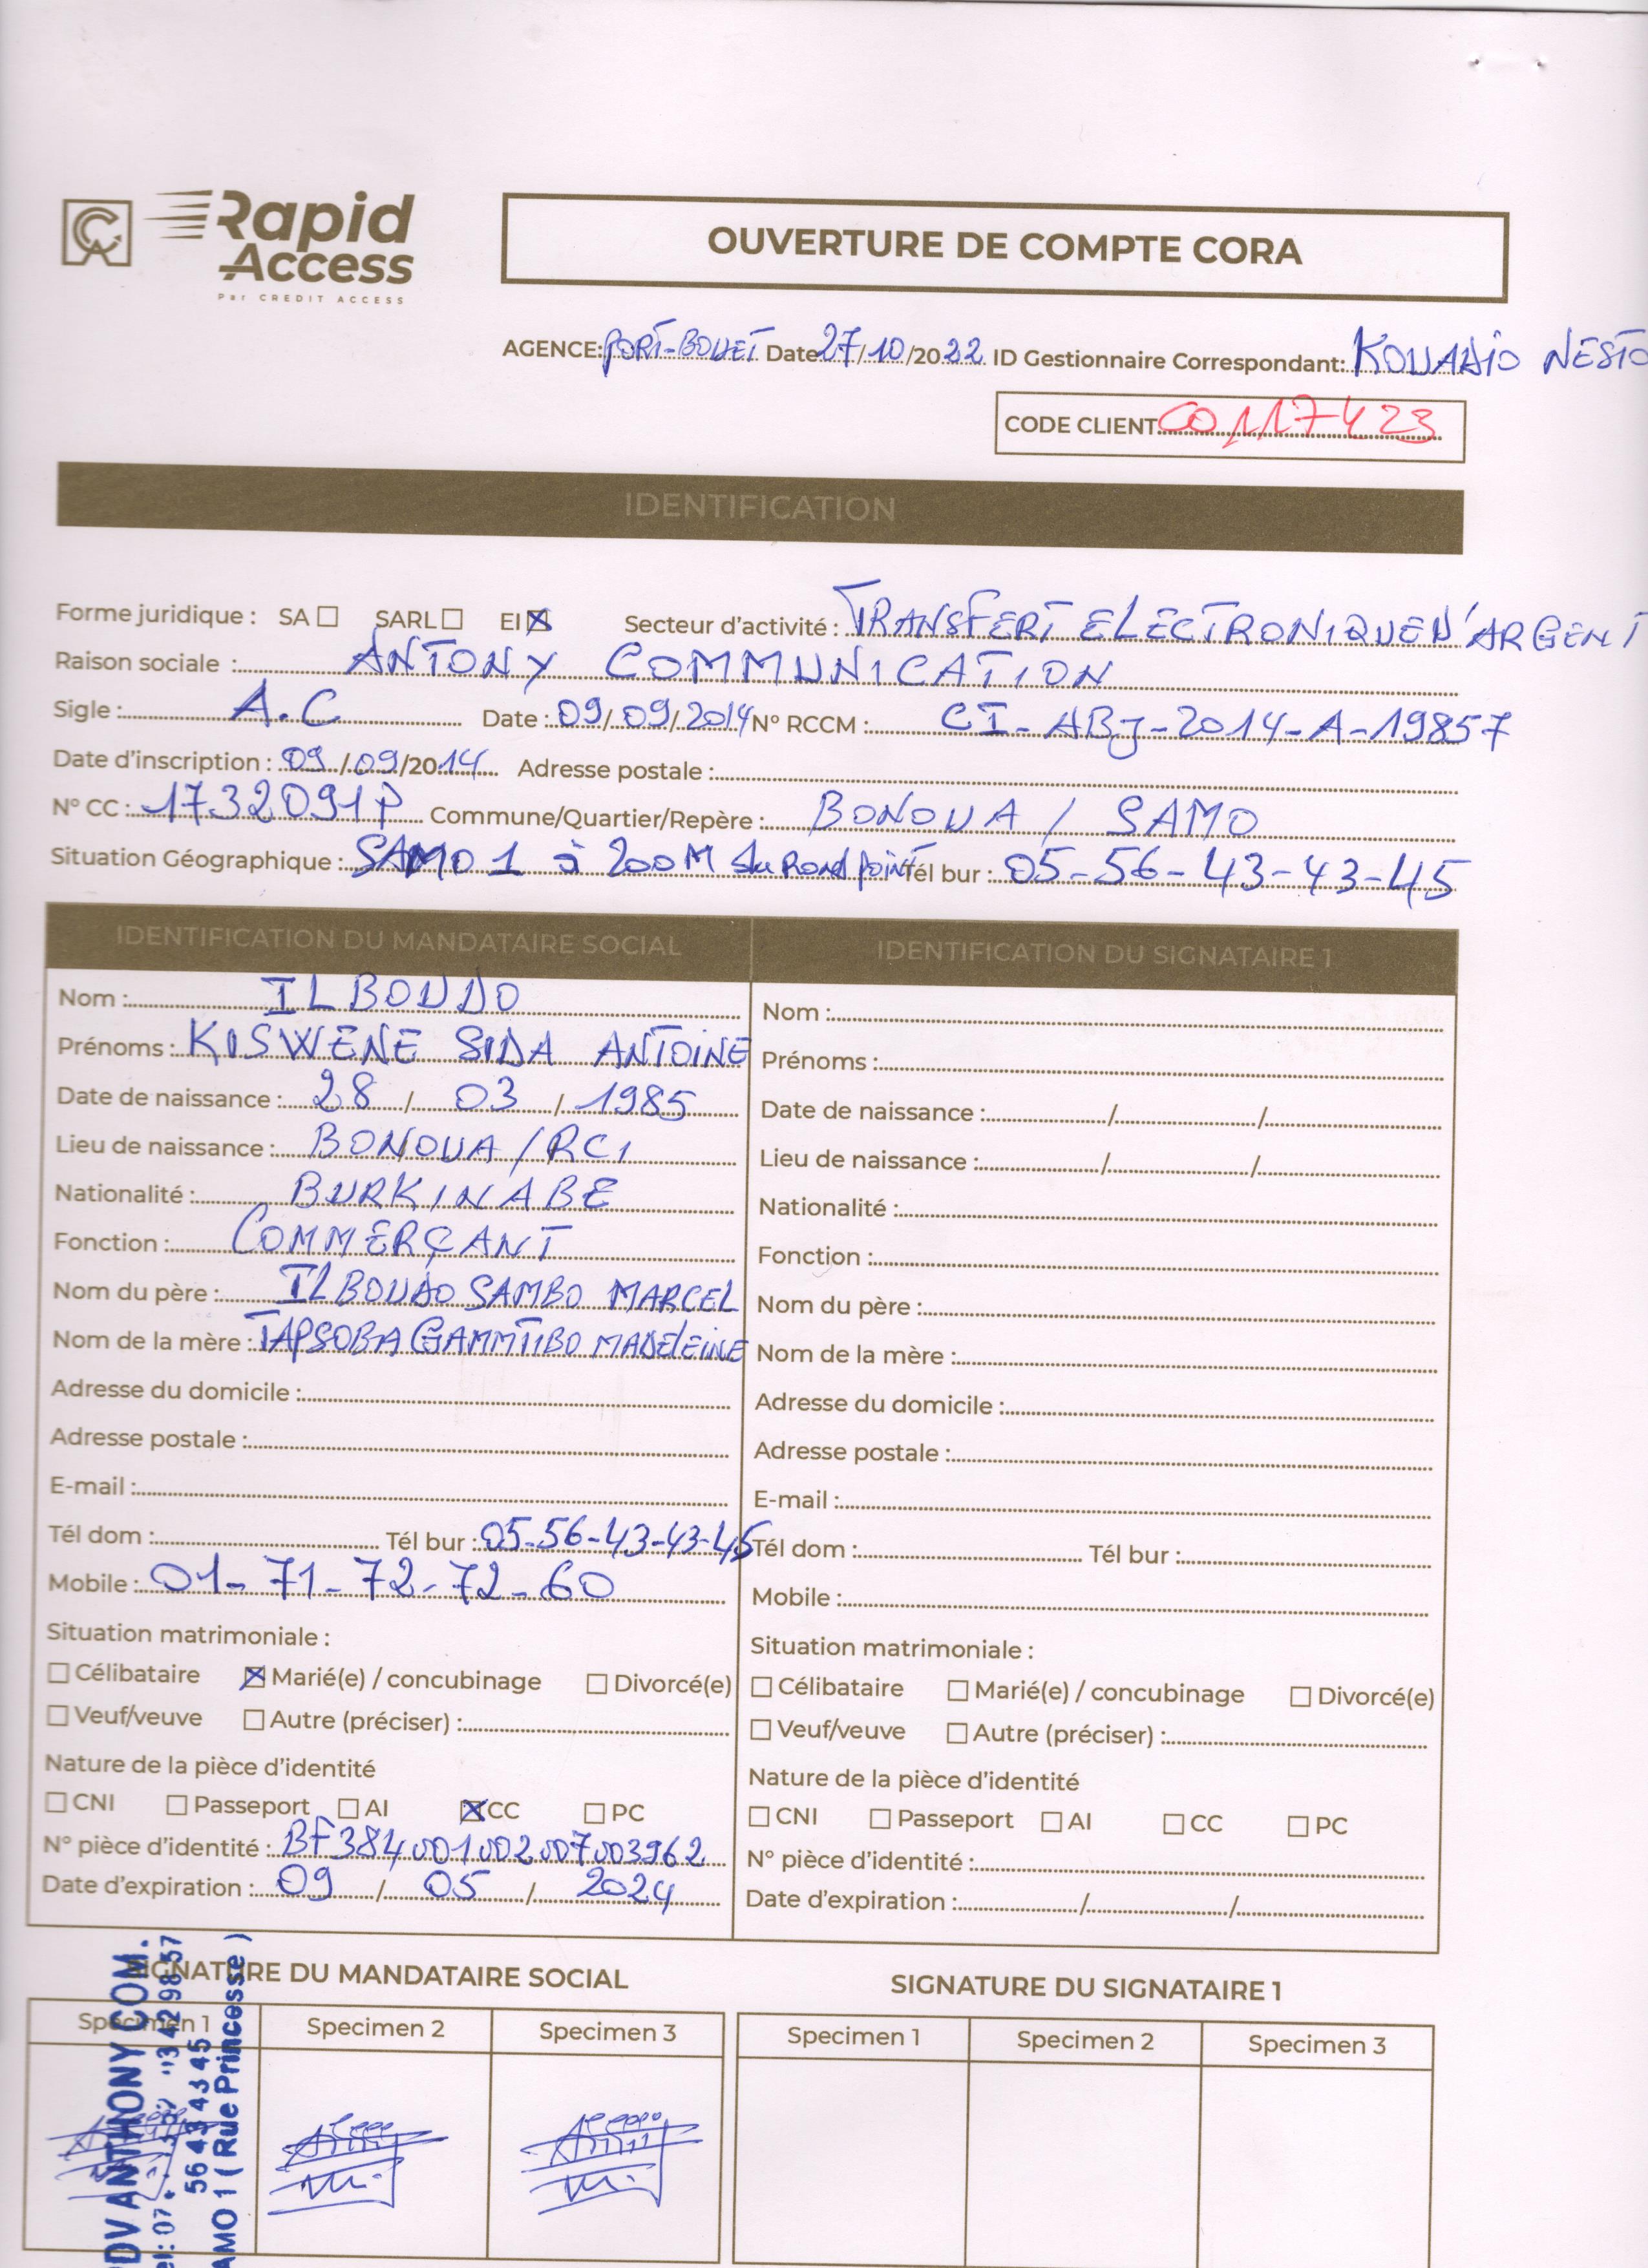 Rapid
Access
Par CREDIT ACCESS
OUVERTURE DE COMPTE CORA
AGENCE: PORT-BOUET Date 27/10/2022 ID Gestionnaire Correspondant: KOUADIO NESTO
CODE CLIENT CO117423
IDENTIFICATION
Forme juridique : SA ☐ SARL ☐ EI ☒ Secteur d'activité : TRANSFERT ELECTRONIQUE D'ARGENT
Raison sociale : ANTONY COMMUNICATION
Sigle : A.C Date : 09/09/2014 N° RCCM : CI-ABJ-2014-A-19857
Date d'inscription : 09/09/2014 Adresse postale :
N° CC : 1732091P Commune/Quartier/Repère : BONOUA / SAMO
Situation Géographique : SAMO 1 à 200M du Rond point Tél bur : 05-56-43-43-45
IDENTIFICATION DU MANDATAIRE SOCIAL
Nom : ILBOUDO
Prénoms : KISWENE SIDA ANTOINE
Date de naissance : 28 / 03 / 1985
Lieu de naissance : BONOUA / RCI
Nationalité : BURKINABE
Fonction : COMMERÇANT
Nom du père : ILBOUDO SAMBO MARCEL
Nom de la mère : TAPSOBA GAMMTIBO MADELEINE
Adresse du domicile :
Adresse postale :
E-mail :
Tél dom : Tél bur : 05-56-43-43-45
Mobile : 01-71-72-72-60
Situation matrimoniale :
☐ Célibataire ☒ Marié(e) / concubinage ☐ Divorcé(e)
☐ Veuf/veuve ☐ Autre (préciser) :
Nature de la pièce d'identité
☐ CNI ☐ Passeport ☐ AI ☒ CC ☐ PC
N° pièce d'identité : BF384001002007003962
Date d'expiration : 09 / 05 / 2024
IDENTIFICATION DU SIGNATAIRE 1
Nom :
Prénoms :
Date de naissance : / /
Lieu de naissance : / /
Nationalité :
Fonction :
Nom du père :
Nom de la mère :
Adresse du domicile :
Adresse postale :
E-mail :
Tél dom : Tél bur :
Mobile :
Situation matrimoniale :
☐ Célibataire ☐ Marié(e) / concubinage ☐ Divorcé(e)
☐ Veuf/veuve ☐ Autre (préciser) :
Nature de la pièce d'identité
☐ CNI ☐ Passeport ☐ AI ☐ CC ☐ PC
N° pièce d'identité :
Date d'expiration : / /
SIGNATURE DU MANDATAIRE SOCIAL
Specimen 1 Specimen 2 Specimen 3
SIGNATURE DU SIGNATAIRE 1
Specimen 1 Specimen 2 Specimen 3
ANTHONY COM.
56 43 43 45
AMO 1 ( Rue Princesse )